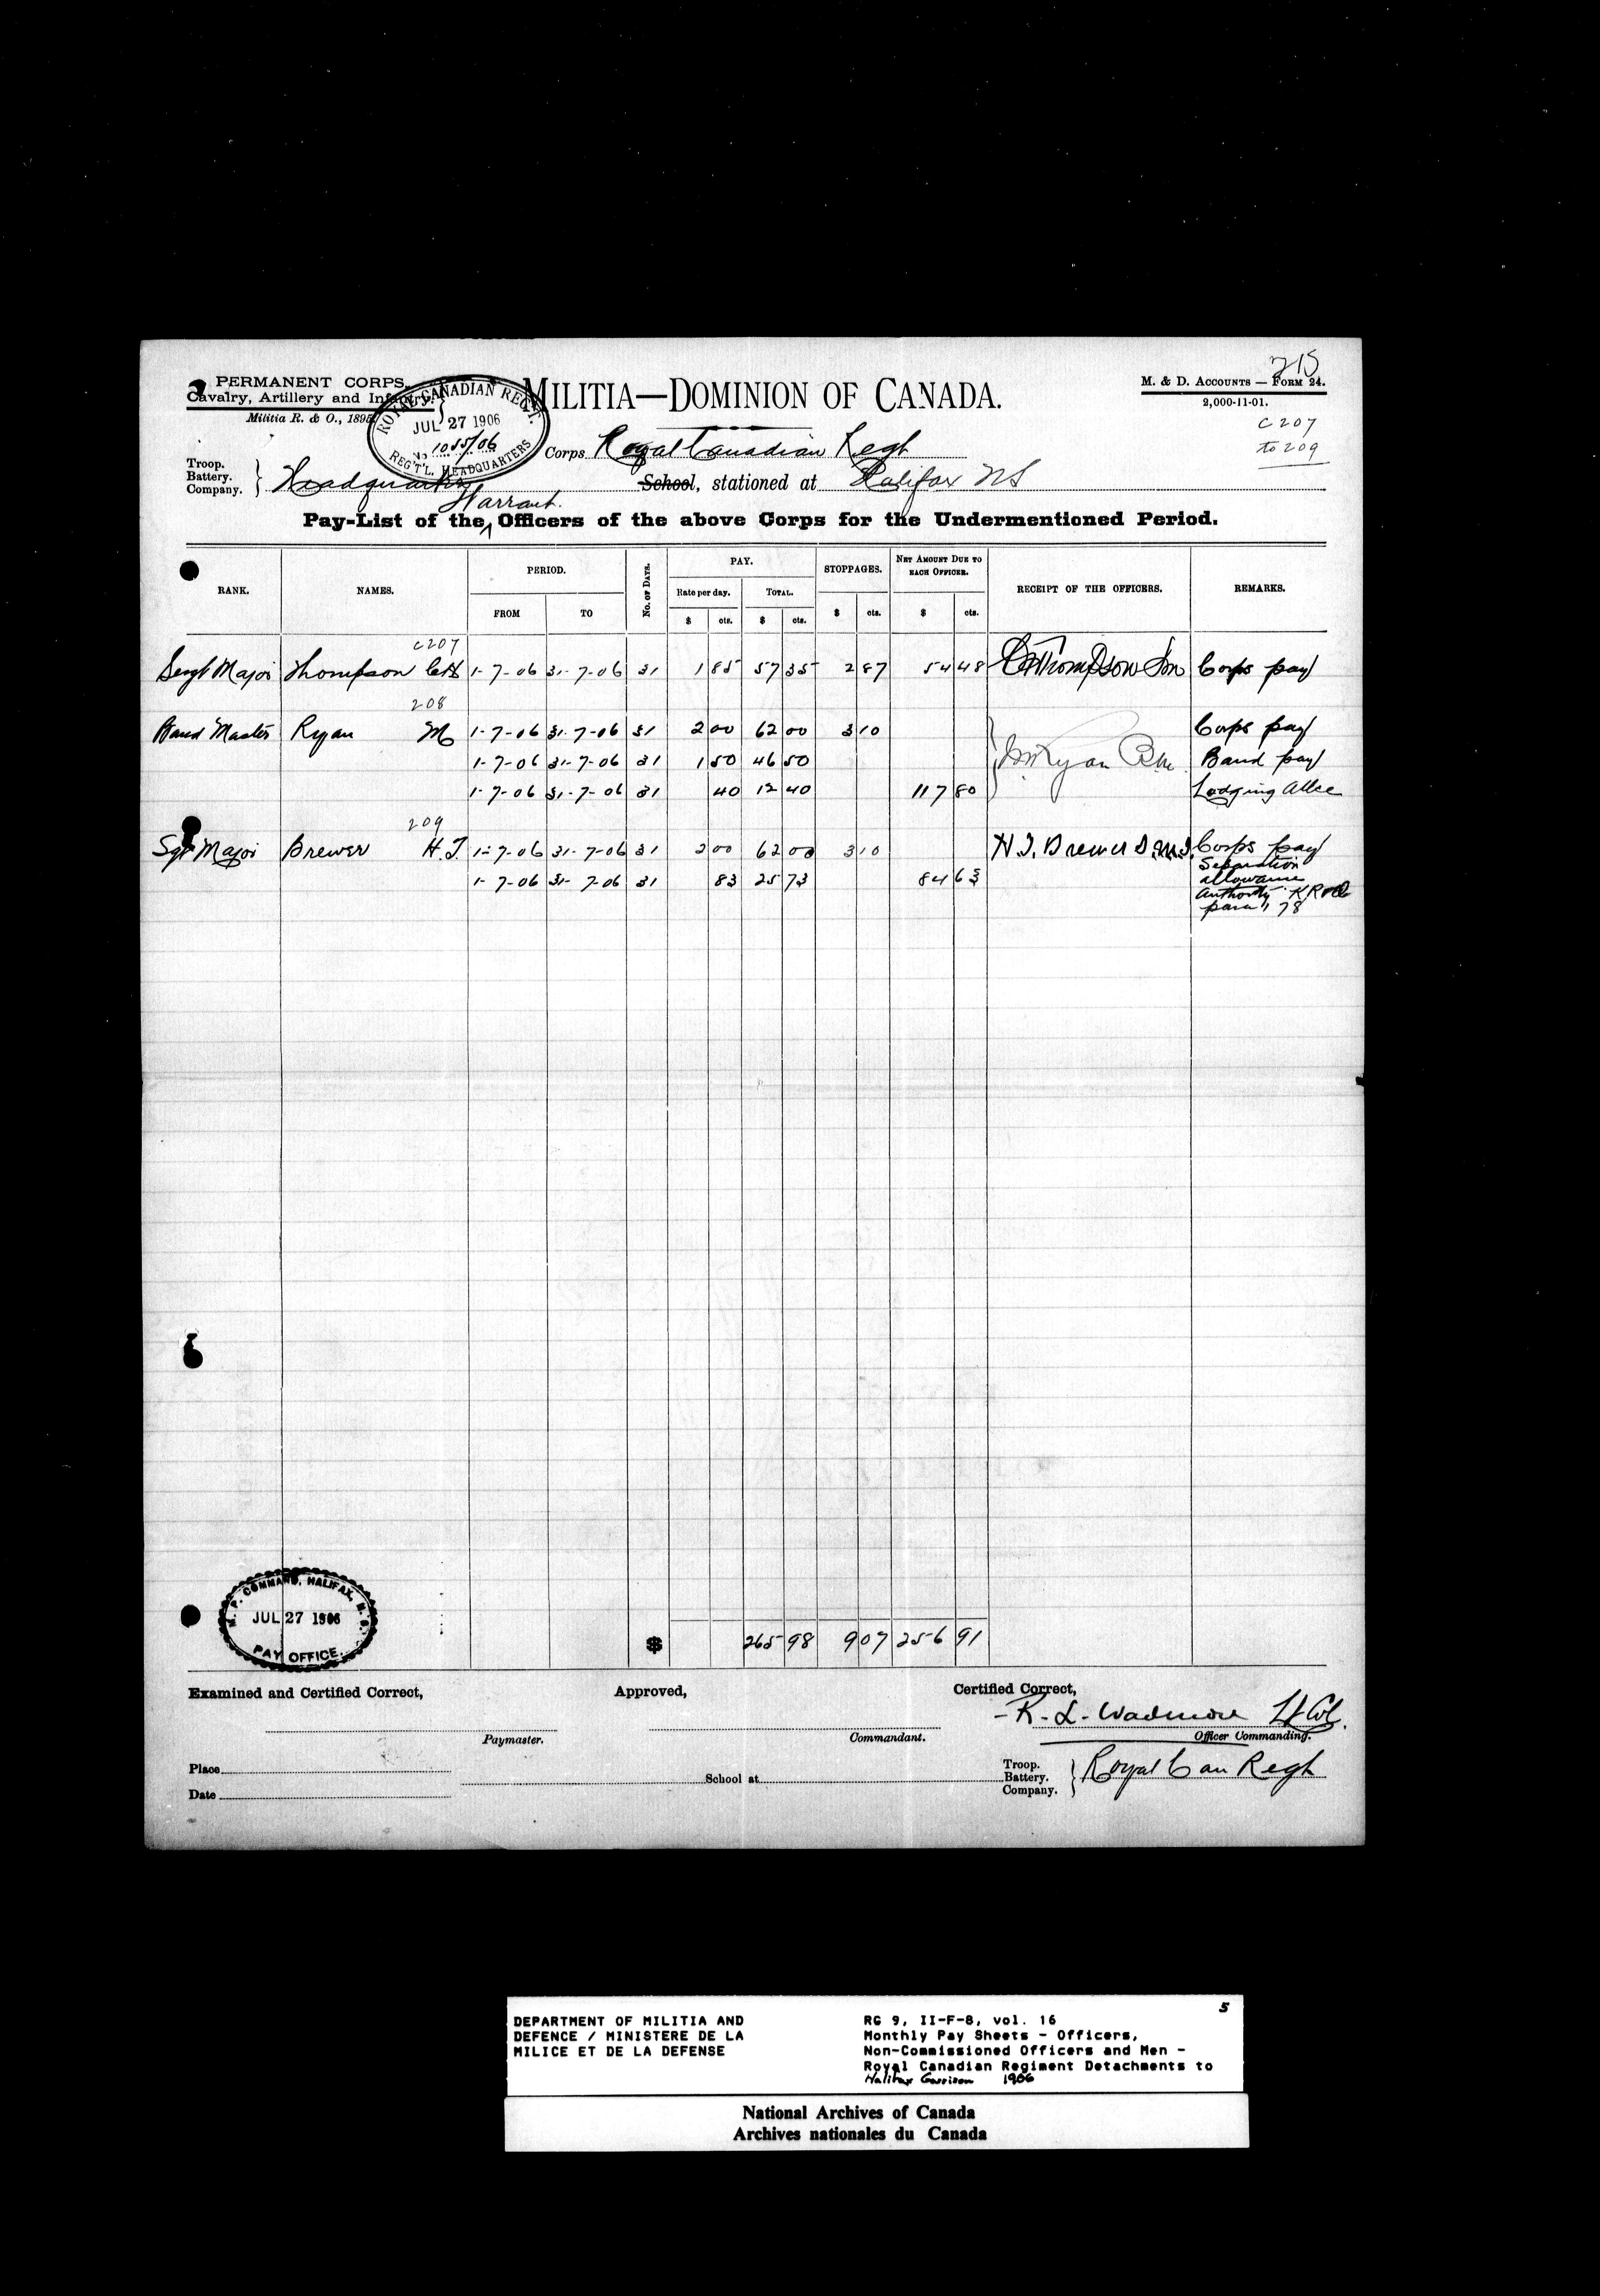 215
PERMANENT CORPS.
Cavalry, Artillery and Infantry.
Militia R. & O., 1898
ROYAL CANADIAN REGT.
JUL 27 1906
No. 1055/06
REG'T'L. HEADQUARTERS
MILITIA—DOMINION OF CANADA.
M. & D. ACCOUNTS — FORM 24.
2,000-11-01.
C 207
to 209
Corps Royal Canadian Regt
Troop.
Battery.
Company.
Headquarters
School, stationed at Halifax NS
Warrant
Pay-List of the Officers of the above Corps for the Undermentioned Period.
RANK. NAMES. PERIOD. FROM TO No. of Days. PAY. Rate per day. $ cts. TOTAL. $ cts. STOPPAGES. $ cts. NET AMOUNT DUE TO EACH OFFICER. $ cts. RECEIPT OF THE OFFICERS. REMARKS.
C207
Sergt Major Thompson 1-7-06 31-7-06 31 1 85 57 35 2 87 54 48 Thompson Corps pay
208
Band Master Ryan M 1-7-06 31-7-06 31 2 00 62 00 3 10 Corps pay
1-7-06 31-7-06 31 1 50 46 50 M Ryan Bm Band pay
1-7-06 31-7-06 31 40 12 40 117 80 Lodging Allce
209
Sgt Major Brewer H.J. 1-7-06 31-7-06 31 2 00 62 00 3 10 H.J. Brewer S.M. Corps pay
1-7-06 31-7-06 31 83 25 73 84 63 Separation
allowance
Authority KR&O
para 78
$ 265 98 9 07 256 91
M. P. COMMAND, HALIFAX, N. S.
JUL 27 1906
PAY OFFICE.
Examined and Certified Correct, Approved, Certified Correct,
R. L. Wadmore Lt Col.
Paymaster. Commandant. Officer Commanding.
Place
School at
Troop.
Battery.
Company.
Royal Can Regt
Date
5
DEPARTMENT OF MILITIA AND
DEFENCE / MINISTERE DE LA
MILICE ET DE LA DEFENSE
RG 9, II-F-8, vol. 16
Monthly Pay Sheets - Officers,
Non-Commissioned Officers and Men -
Royal Canadian Regiment Detachments to
Halifax Garrison 1906
National Archives of Canada
Archives nationales du Canada